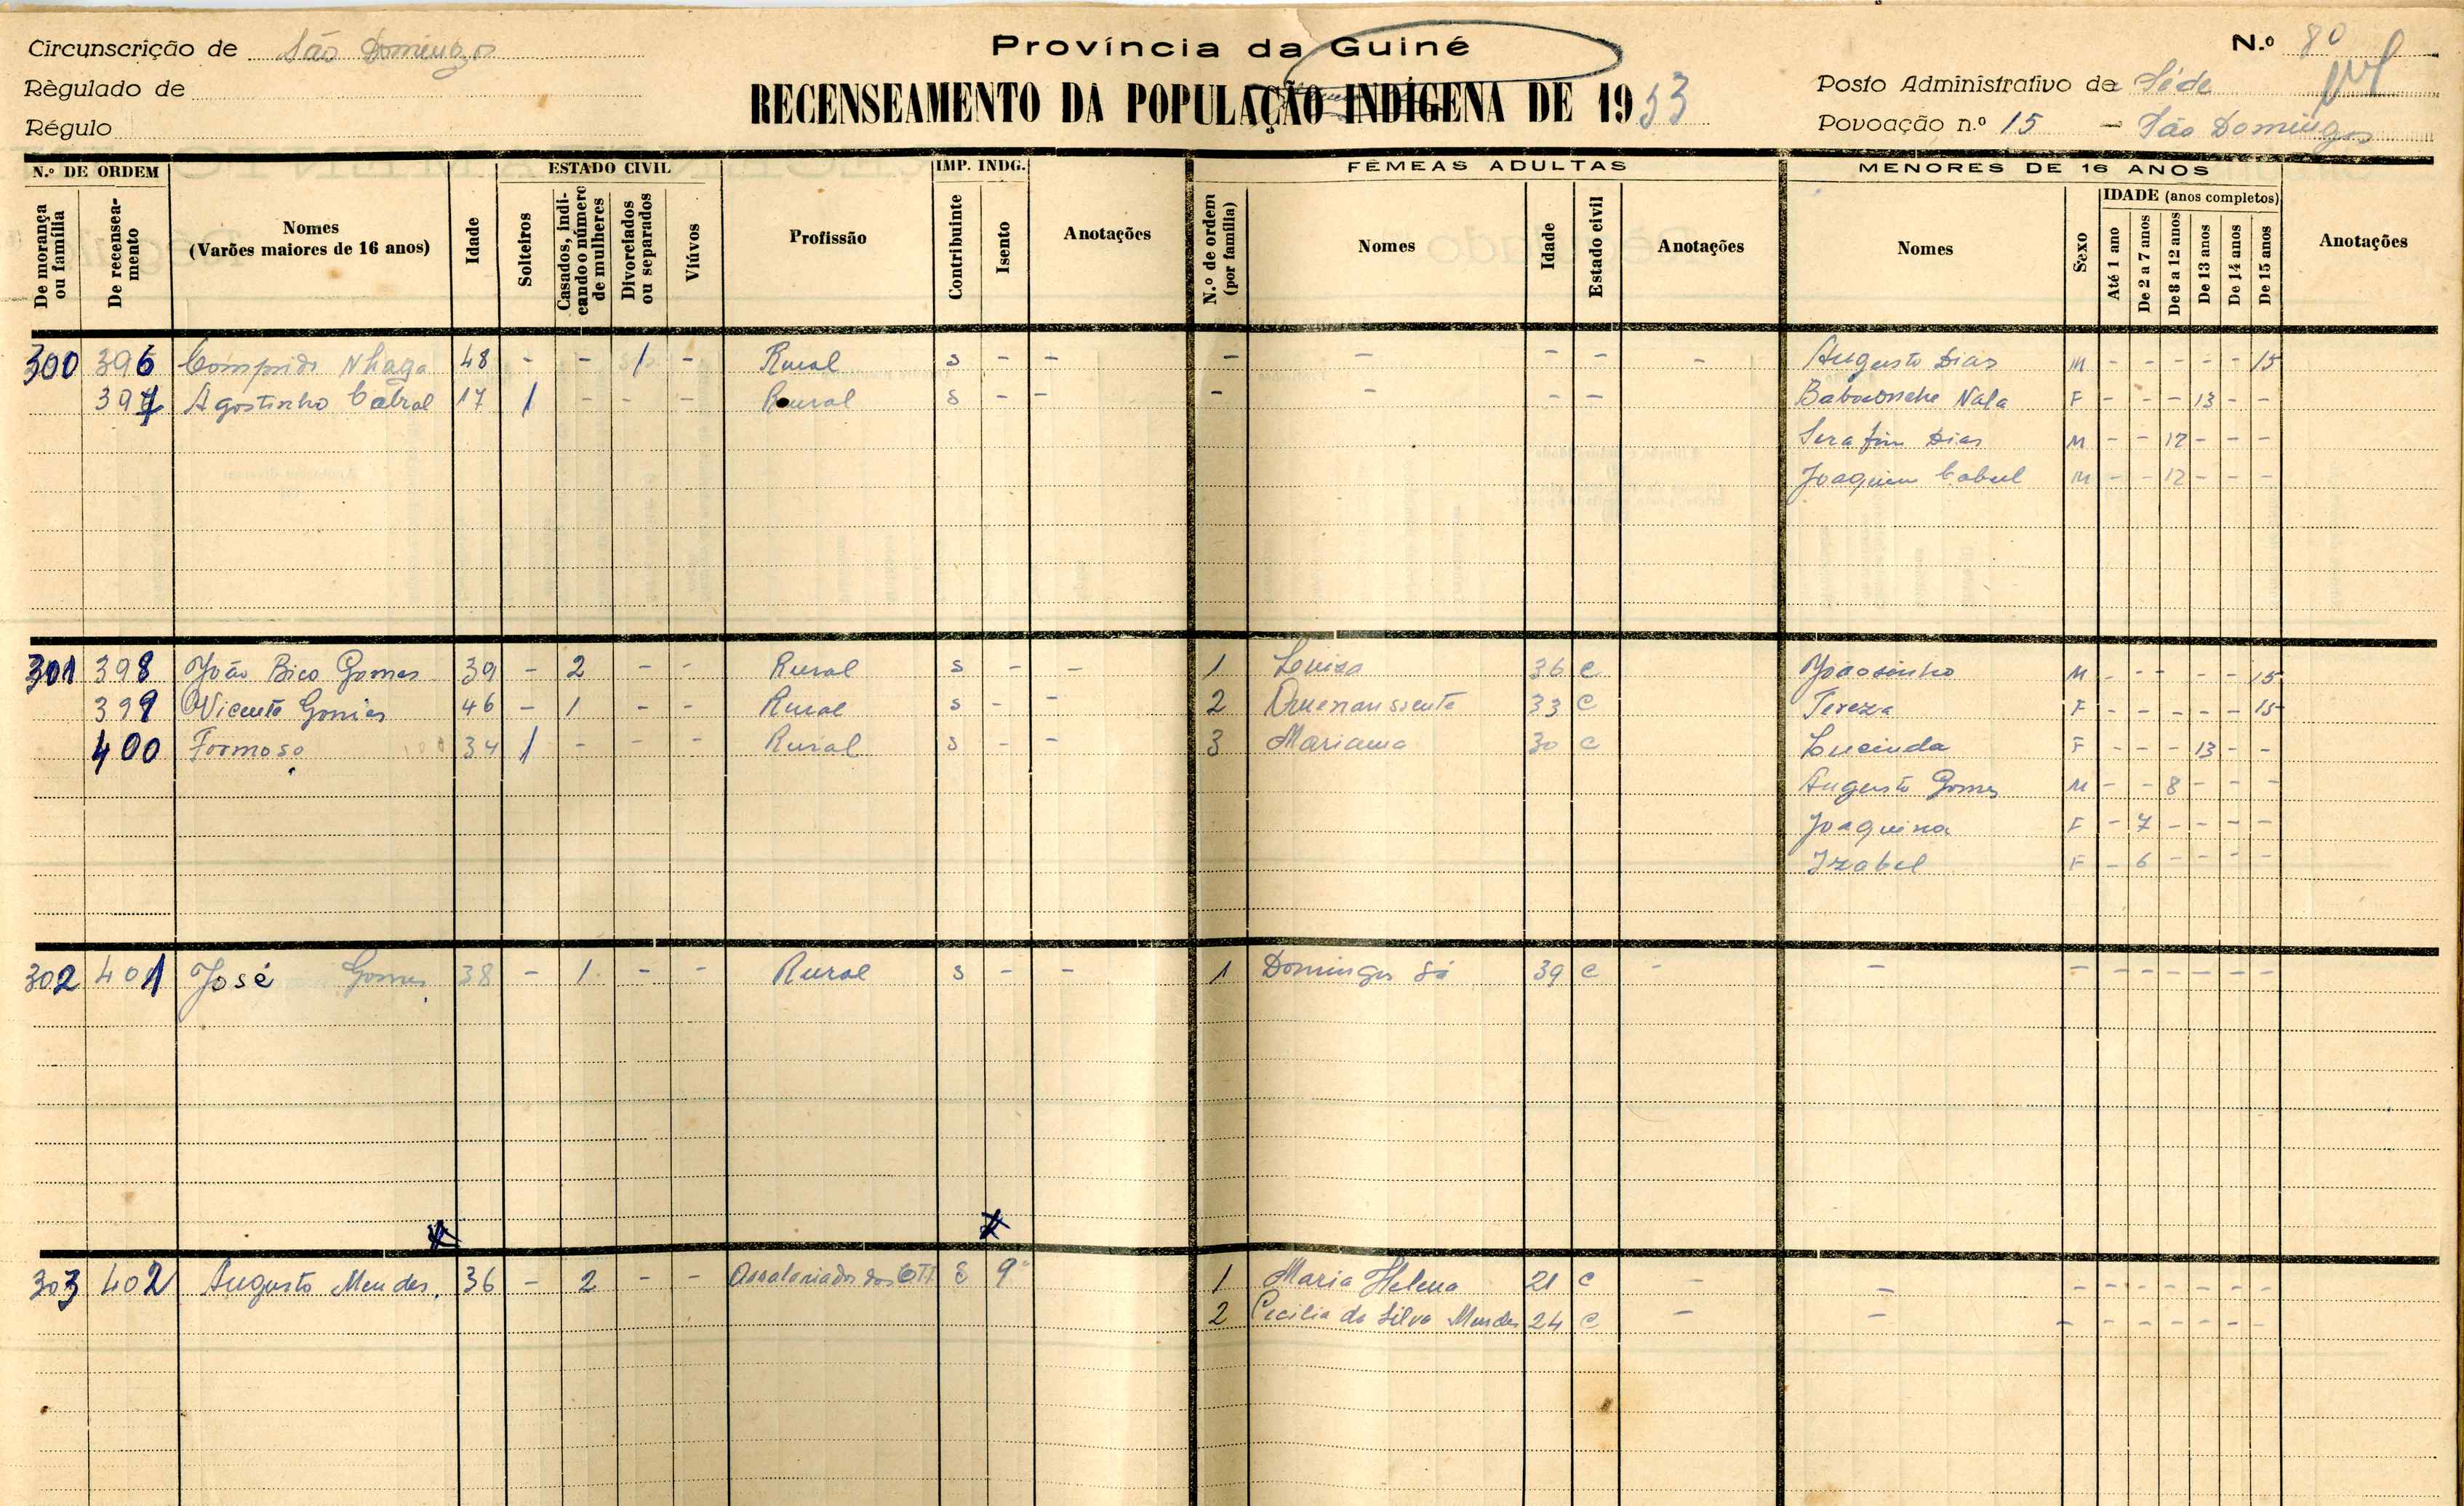 Circunscrição de São Domingos
Província da Guiné
N.º 80
Règulado de
RECENSEAMENTO DA POPULAÇÃO INDÍGENA DE 1953
Posto Administrativo de Séde
Régulo
Povoação n.º 15 - São Domingos
N.º DE ORDEM
ESTADO CIVIL
IMP. INDG.
FÊMEAS ADULTAS
MENORES DE 16 ANOS
De morança ou família
De recenseamento
Nomes
(Varões maiores de 16 anos)
Idade
Solteiros
Casados, indicando o número de mulheres
Divorciados ou separados
Viúvos
Profissão
Contribuinte
Isento
Anotações
N.º de ordem (por família)
Nomes
Idade
Estado civil
Anotações
Nomes
Sexo
IDADE (anos completos)
Até 1 ano
De 2 a 7 anos
De 8 a 12 anos
De 13 anos
De 14 anos
De 15 anos
Anotações
300 396 Comprido Nhaga 48 - - 1 - Rural s - - - - - - - Augusto Dias M - - - - - 15
397 Agostinho Cabral 17 1 - - - Rural s - - - - - - Nala F - - - 13 - -
Serafim Dias M - - 12 - - -
Joaquim Cabral M - - 12 - - -
301 398 João Bico Gomes 39 - 2 - - Rural s - - 1 Luiza 36 C Joãosinho M - - - - - 15
399 Vicente Gomes 46 - 1 - - Rural s - - 2 33 C Tereza F - - - - - 15
400 Formoso 34 1 - - - Rural s - - 3 Mariama 30 C Lucinda F - - - 13 - -
Augusto Gomes M - - 8 - - -
Joaquina F - 7 - - - -
Izabel F - 6 - - - -
302 401 José Gomes 38 - 1 - - Rural s - - 1 Domingas Sá 39 C - - - - - - - - -
303 402 Augusto Mendes 36 - 2 - - Assalariado dos CTT 9 1 Maria Helena 21 C - - - - - - - - -
2 Cecilia da Silva Mendes 24 C - - - - - - - - -